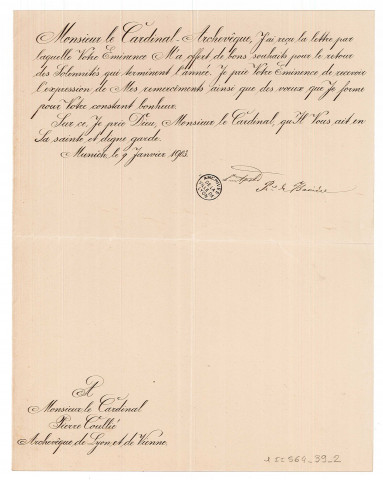 Monsieur le Cardinal-Archevêque, J'ai reçu la lettre par
laquelle Votre Eminence M'a offert de bons souhaits pour le retour
des Solennités qui terminent l'année. Je prie Votre Eminence de recevoir
l'expression de Mes remerciments ainsi que des vœux que Je forme
pour Votre constant bonheur.
Sur ce, Je prie Dieu, Monsieur le Cardinal, qu'Il Vous ait en
Sa sainte et digne garde.
Munich, le 9 Janvier 1903.
de Bavière
ARCHIVES
DE LA
VILLE DE
LYON
A
Monsieur le Cardinal
Pierre Coullié
Archevêque de Lyon et de Vienne.
564_39_2